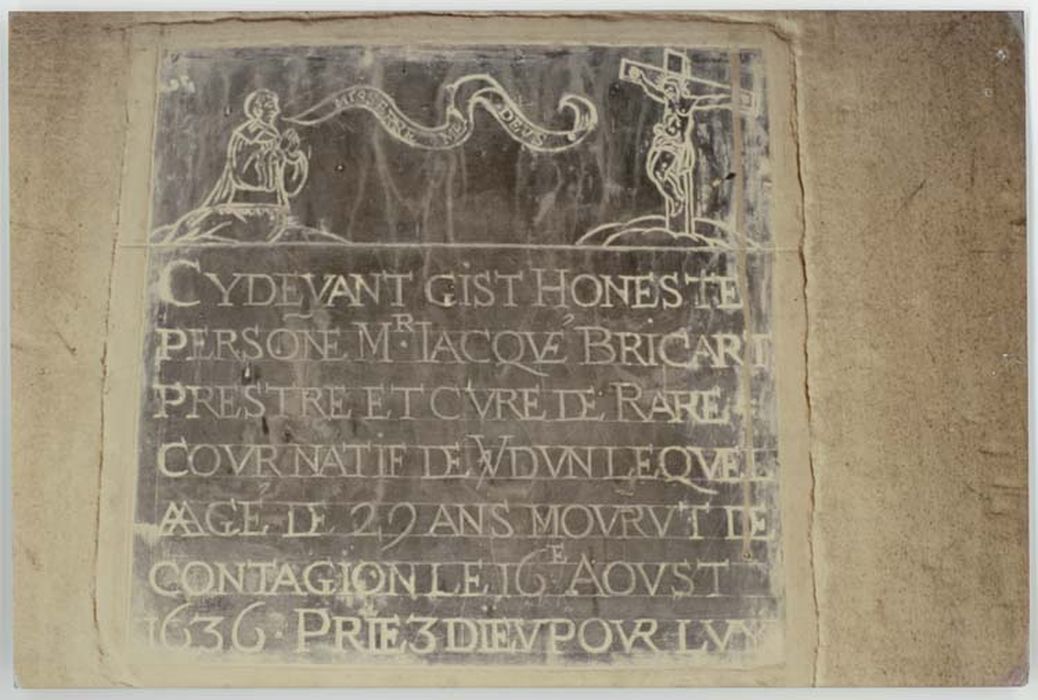 MISERERE MEI DEVS
CY DEVANT GIST HONESTE
PERSONE MR. IACQVE BRICART
PRESTRE ET CVRE DE RARE=
COVR NATIF DE VDVN LEQVEL
AAGE DE 29 ANS MOVRVT DE
CONTAGION LE 16E AOVST
1636. PRIEZ DIEV POVR LVY